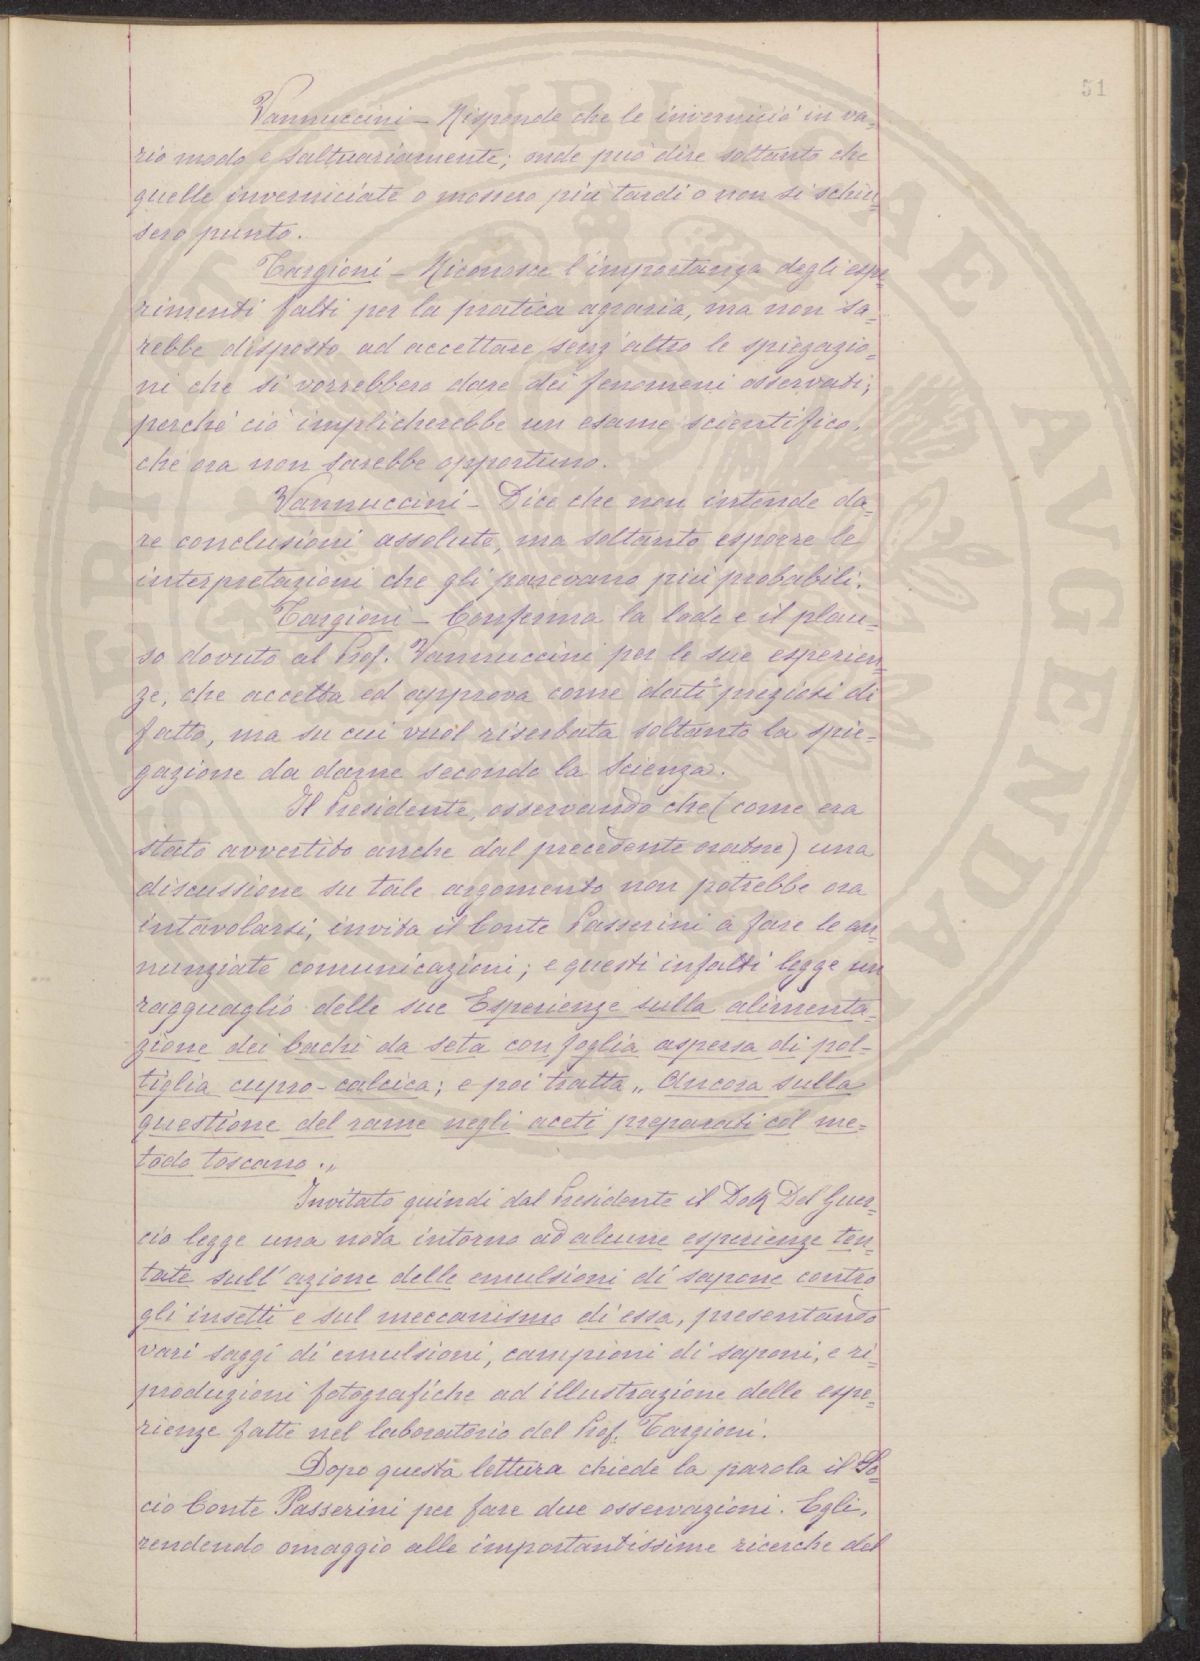 51
Vannuccini - Risponde che le inverniciò in va=
rio modo e saltuariamente; onde può dire soltanto che
quelle inverniciate o mossero più tardi o non si schiu=
sero punto.
Targioni - Riconosce l'importanza degli espe=
rimenti fatti per la pratica agraria, ma non sa=
rebbe disposto ad accettare senz'altro le spiegazio=
ni che si vorrebbero dare dei fenomeni osservati;
perchè ciò implicherebbe un esame scientifico,
che ora non sarebbe opportuno.
Vannuccini - Dice che non intende da=
re conclusioni assolute, ma soltanto esporre le
interpretazioni che gli parevano più probabili.
Targioni - Conferma la lode e il plau=
so dovuto al Prof. Vannuccini per le sue esperien=
ze, che accetta ed approva come dati preziosi di
fatto, ma su cui vuol riserbata soltanto la spie=
gazione da darne secondo la Scienza.
Il Presidente, osservando che (come era
stato avvertito anche dal precedente oratore) una
discussione su tale argomento non potrebbe ora
intavolarsi, invita il Conte Passerini a fare le an=
nunziate comunicazioni; e questi infatti legge un
ragguaglio delle sue Esperienze sulla alimenta=
zione dei bachi da seta con foglia aspersa di pol=
tiglia cupro-calcica; e poi tratta „ Ancora sulla
questione del rame negli aceti preparati col me=
todo toscano.„
Invitato quindi dal Presidente il Dott. Del Guer=
cio legge una nota intorno ad alcune esperienze ten=
tate sull'azione delle emulsioni di sapone contro
gli insetti e sul meccanismo di essa, presentando
vari saggi di emulsioni, campioni di saponi, e ri=
produzioni fotografiche ad illustrazione delle espe=
rienze fatte nel laboratorio del Prof. Targioni.
Dopo questa lettura chiede la parola il So=
cio Conte Passerini per fare due osservazioni. Egli,
rendendo omaggio alle importantissime ricerche del